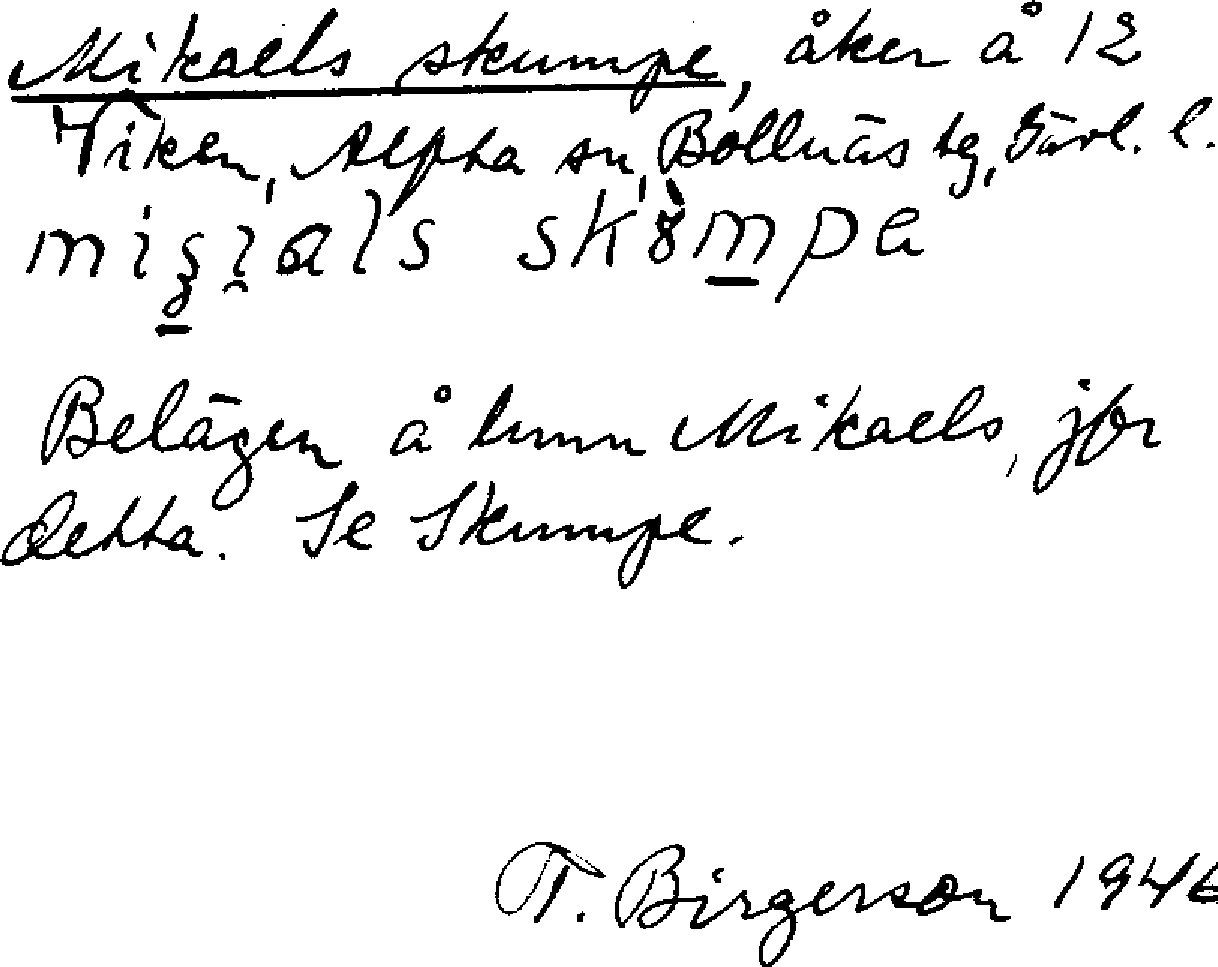 Mikaels skumpe, åker å 12
Viken, Alfta sn, Bollnäs tg, Gävl. l.
Belägen å hmn Mikaels, jfr
detta. Se Skumpe.
T. Birgerson 1946